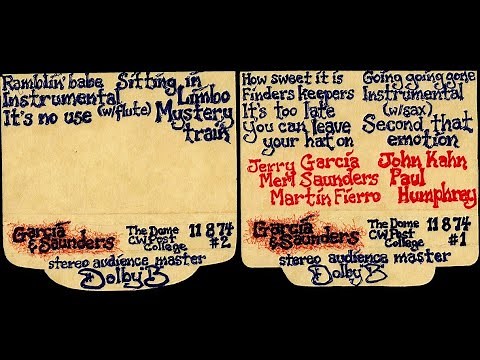 Ramblin' babe
Instrumental
(w/flute)
It's no use
Sitting in
Limbo
Mystery
train
Garcia
& Saunders
The Dome
CW Post
College
11 8 74
#2
stereo audience master
Dolby B
How sweet it is
Finders keepers
It's too late
You can leave
your hat on
Going going gone
Instrumental
(w/sax)
Second that
emotion
Jerry Garcia
Merl Saunders
Martin Fierro
John Kahn
Paul
Humphrey
Garcia
& Saunders
The Dome
CW Post
College
11 8 74
#1
stereo audience master
Dolby B